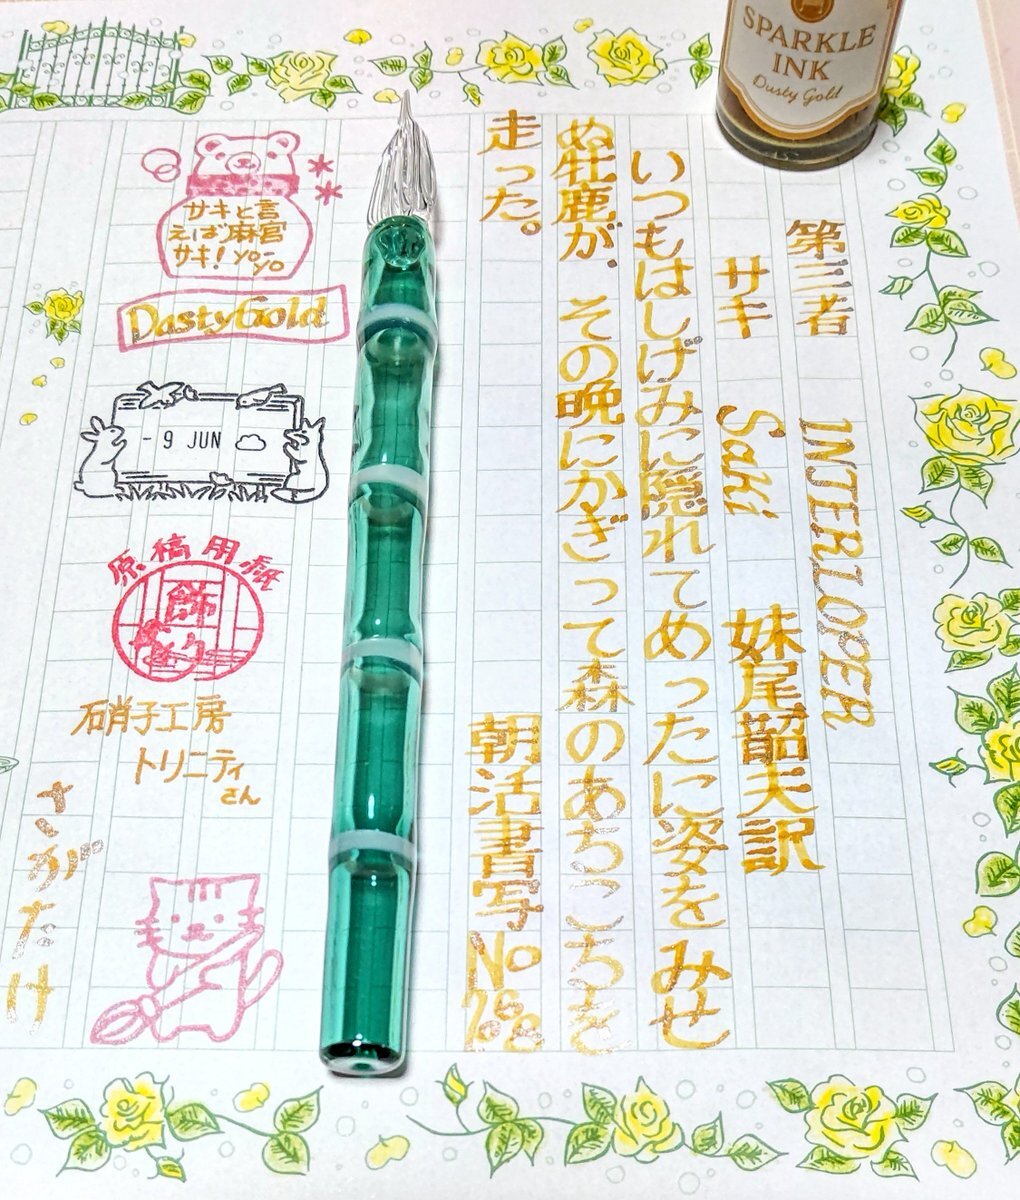 SPARKLE
INK
Dusty Gold
第三者 INTERLOPER
サキ Saki 妹尾韶夫訳
いつもはしげみに隠れてめったに姿をみせ
ぬ牡鹿が、その晩にかぎって森のあちこちを
走った。 朝活書写 No
サキと言
えば麻宮
サキ! yo-
yo
DastyGold
- 9 JUN
原稿用紙
飾り
硝子工房
トリニティ
さん
さがたけ